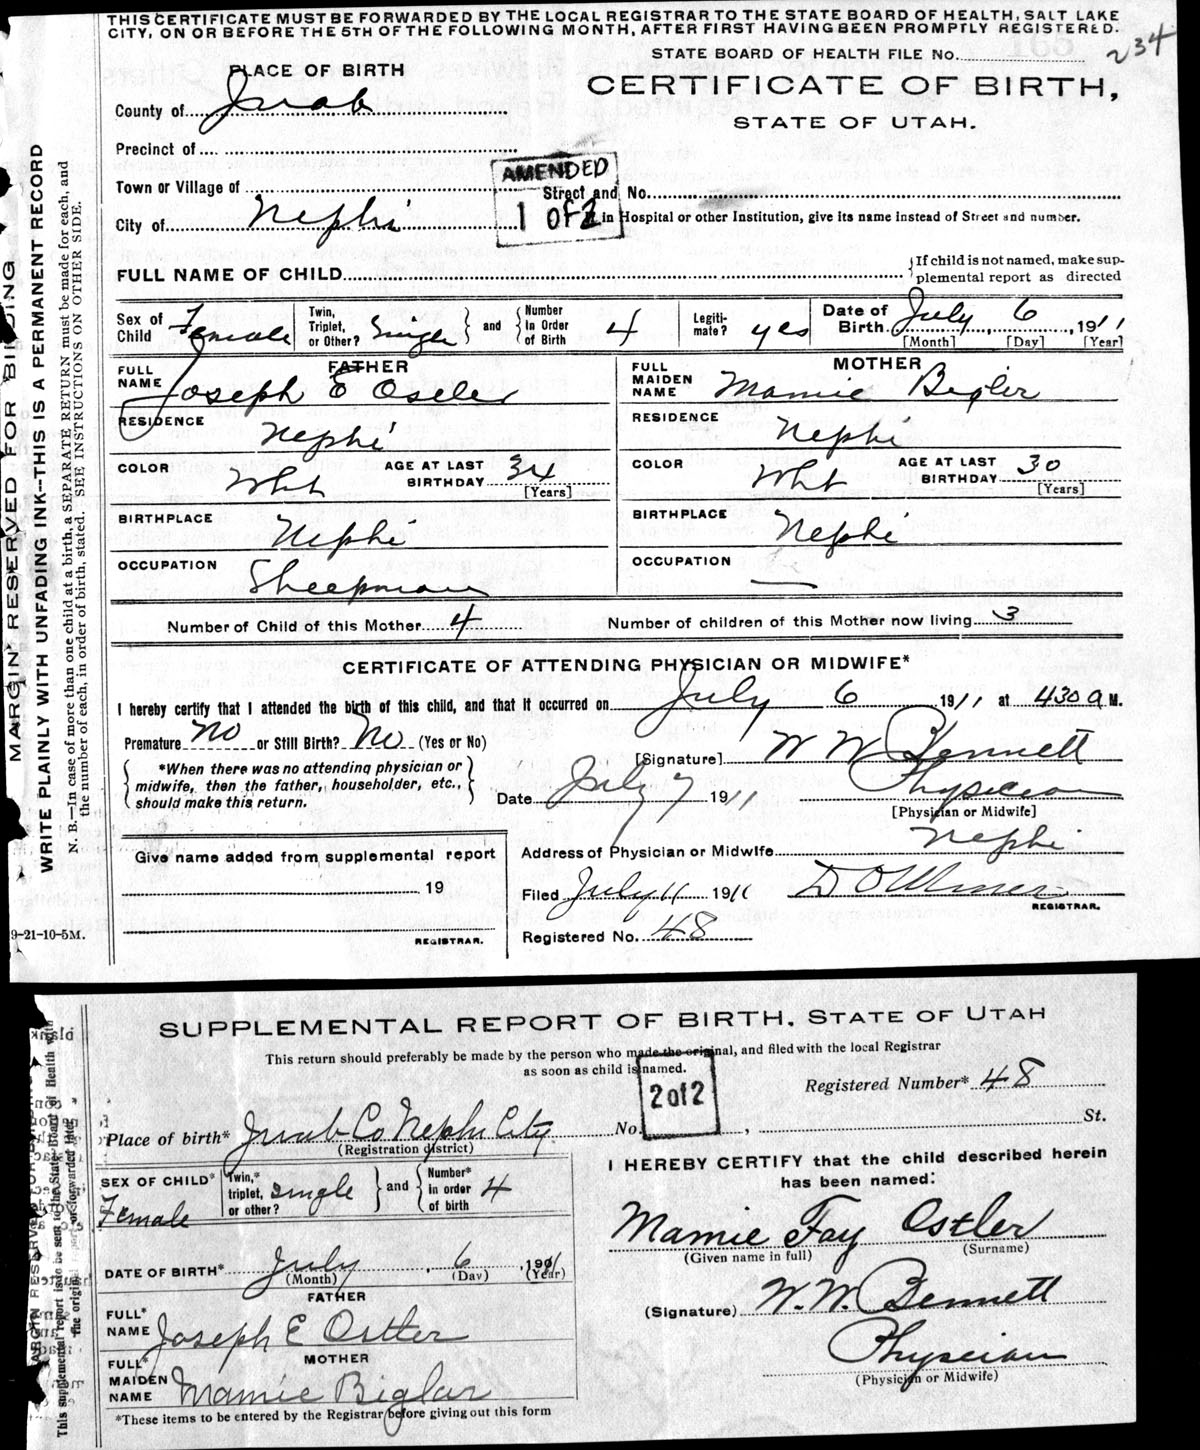 THIS CERTIFICATE MUST BE FORWARDED BY THE LOCAL REGISTRAR TO THE STATE BOARD OF HEALTH, SALT LAKE
CITY, ON OR BEFORE THE 5TH OF THE FOLLOWING MONTH, AFTER FIRST HAVING BEEN PROMPTLY REGISTERED.
STATE BOARD OF HEALTH FILE No. 234
PLACE OF BIRTH
CERTIFICATE OF BIRTH,
STATE OF UTAH.
County of Juab
Precinct of
AMENDED
1 of 2
Town or Village of
Street and No.
City of Nephi
in Hospital or other Institution, give its name instead of Street and number.
FULL NAME OF CHILD
If child is not named, make sup-
plemental report as directed
Sex of Child Female
Twin, Triplet, or Other? Single
and Number in Order of Birth 4
Legiti-mate? yes
Date of Birth July 6, 1911
[Month] [Day] [Year]
FATHER
FULL NAME Joseph E Ostler
RESIDENCE Nephi
COLOR Wht AGE AT LAST BIRTHDAY 34 [Years]
BIRTHPLACE Nephi
OCCUPATION Sheepman
MOTHER
FULL MAIDEN NAME Mamie Bigler
RESIDENCE Nephi
COLOR Wht AGE AT LAST BIRTHDAY 30 [Years]
BIRTHPLACE Nephi
OCCUPATION —
Number of Child of this Mother 4 Number of children of this Mother now living 3
CERTIFICATE OF ATTENDING PHYSICIAN OR MIDWIFE*
I hereby certify that I attended the birth of this child, and that it occurred on July 6 1911 at 430 a M.
Premature No or Still Birth? No (Yes or No)
*When there was no attending physician or
midwife, then the father, householder, etc.,
should make this return.
[Signature] W W Bennett
Date July 7 1911 Physician
[Physician or Midwife]
Give name added from supplemental report
19
REGISTRAR.
Address of Physician or Midwife Nephi
Filed July 11 1911
REGISTRAR.
Registered No. 48
9-21-10-5M.
MARGIN RESERVED FOR BINDING
WRITE PLAINLY WITH UNFADING INK--THIS IS A PERMANENT RECORD
N. B.—In case of more than one child at a birth, a SEPARATE RETURN must be made for each, and
the number of each, in order of birth, stated. SEE INSTRUCTIONS ON OTHER SIDE.
SUPPLEMENTAL REPORT OF BIRTH, STATE OF UTAH
This return should preferably be made by the person who made the original, and filed with the local Registrar
as soon as child is named.
2 of 2
Registered Number* 48
Place of birth* Juab Co Nephi City No. , St.
(Registration district)
SEX OF CHILD* Female
Twin,* triplet, or other? single
and Number* in order of birth 4
DATE OF BIRTH* July 6, 1911
(Month) (Day) (Year)
FATHER
FULL* NAME Joseph E Ostler
MOTHER
FULL* MAIDEN NAME Mamie Biglar
*These items to be entered by the Registrar before giving out this form
I HEREBY CERTIFY that the child described herein
has been named:
Mamie Fay Ostler
(Given name in full) (Surname)
(Signature) W. W. Bennett
Physician
(Physician or Midwife)